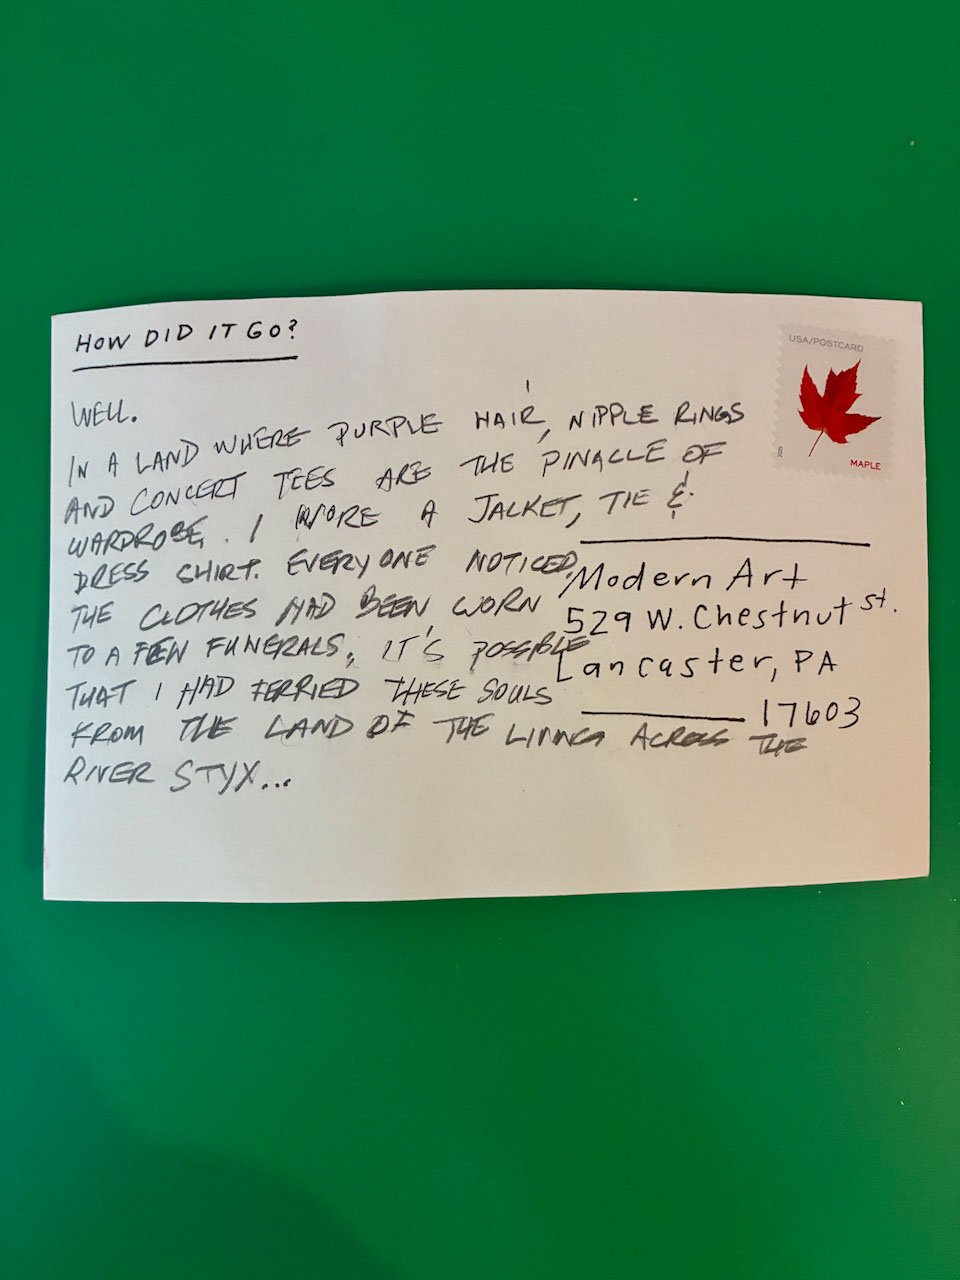 HOW DID IT GO?
USA/POSTCARD
2025
MAPLE
WELL.
IN A LAND WHERE PURPLE HAIR, NIPPLE RINGS
AND CONCERT TEES ARE THE PINACLE OF
WARDROBE. I WORE A JACKET, TIE &
DRESS SHIRT. EVERYONE NOTICED.
THE CLOTHES HAD BEEN WORN
TO A FEW FUNERALS, IT'S POSSIBLE
THAT I HAD FERRIED THESE SOULS
FROM THE LAND OF THE LIVING ACROSS THE
RIVER STYX...
Modern Art
529 W. Chestnut St.
Lancaster, PA
17603